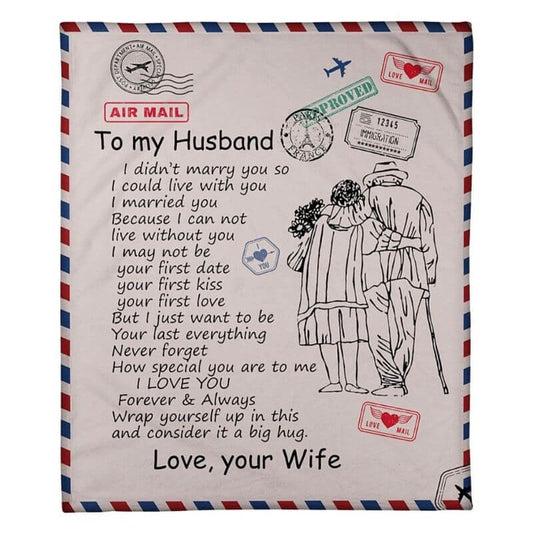 POST DEPARTMENT • AIR MAIL SPECIAL
AIR MAIL
LOVE MAIL
APPROVED
12345
IMMIGRATION
PARIS
FRANCE
To my Husband
I didn't marry you so
I could live with you
I married you
Because I can not
live without you
I may not be
your first date
your first kiss
your first love
But I just want to be
Your last everything
Never forget
How special you are to me
I LOVE YOU
Forever & Always
Wrap yourself up in this
and consider it a big hug.
Love, your Wife
YOU
LOVE MAIL